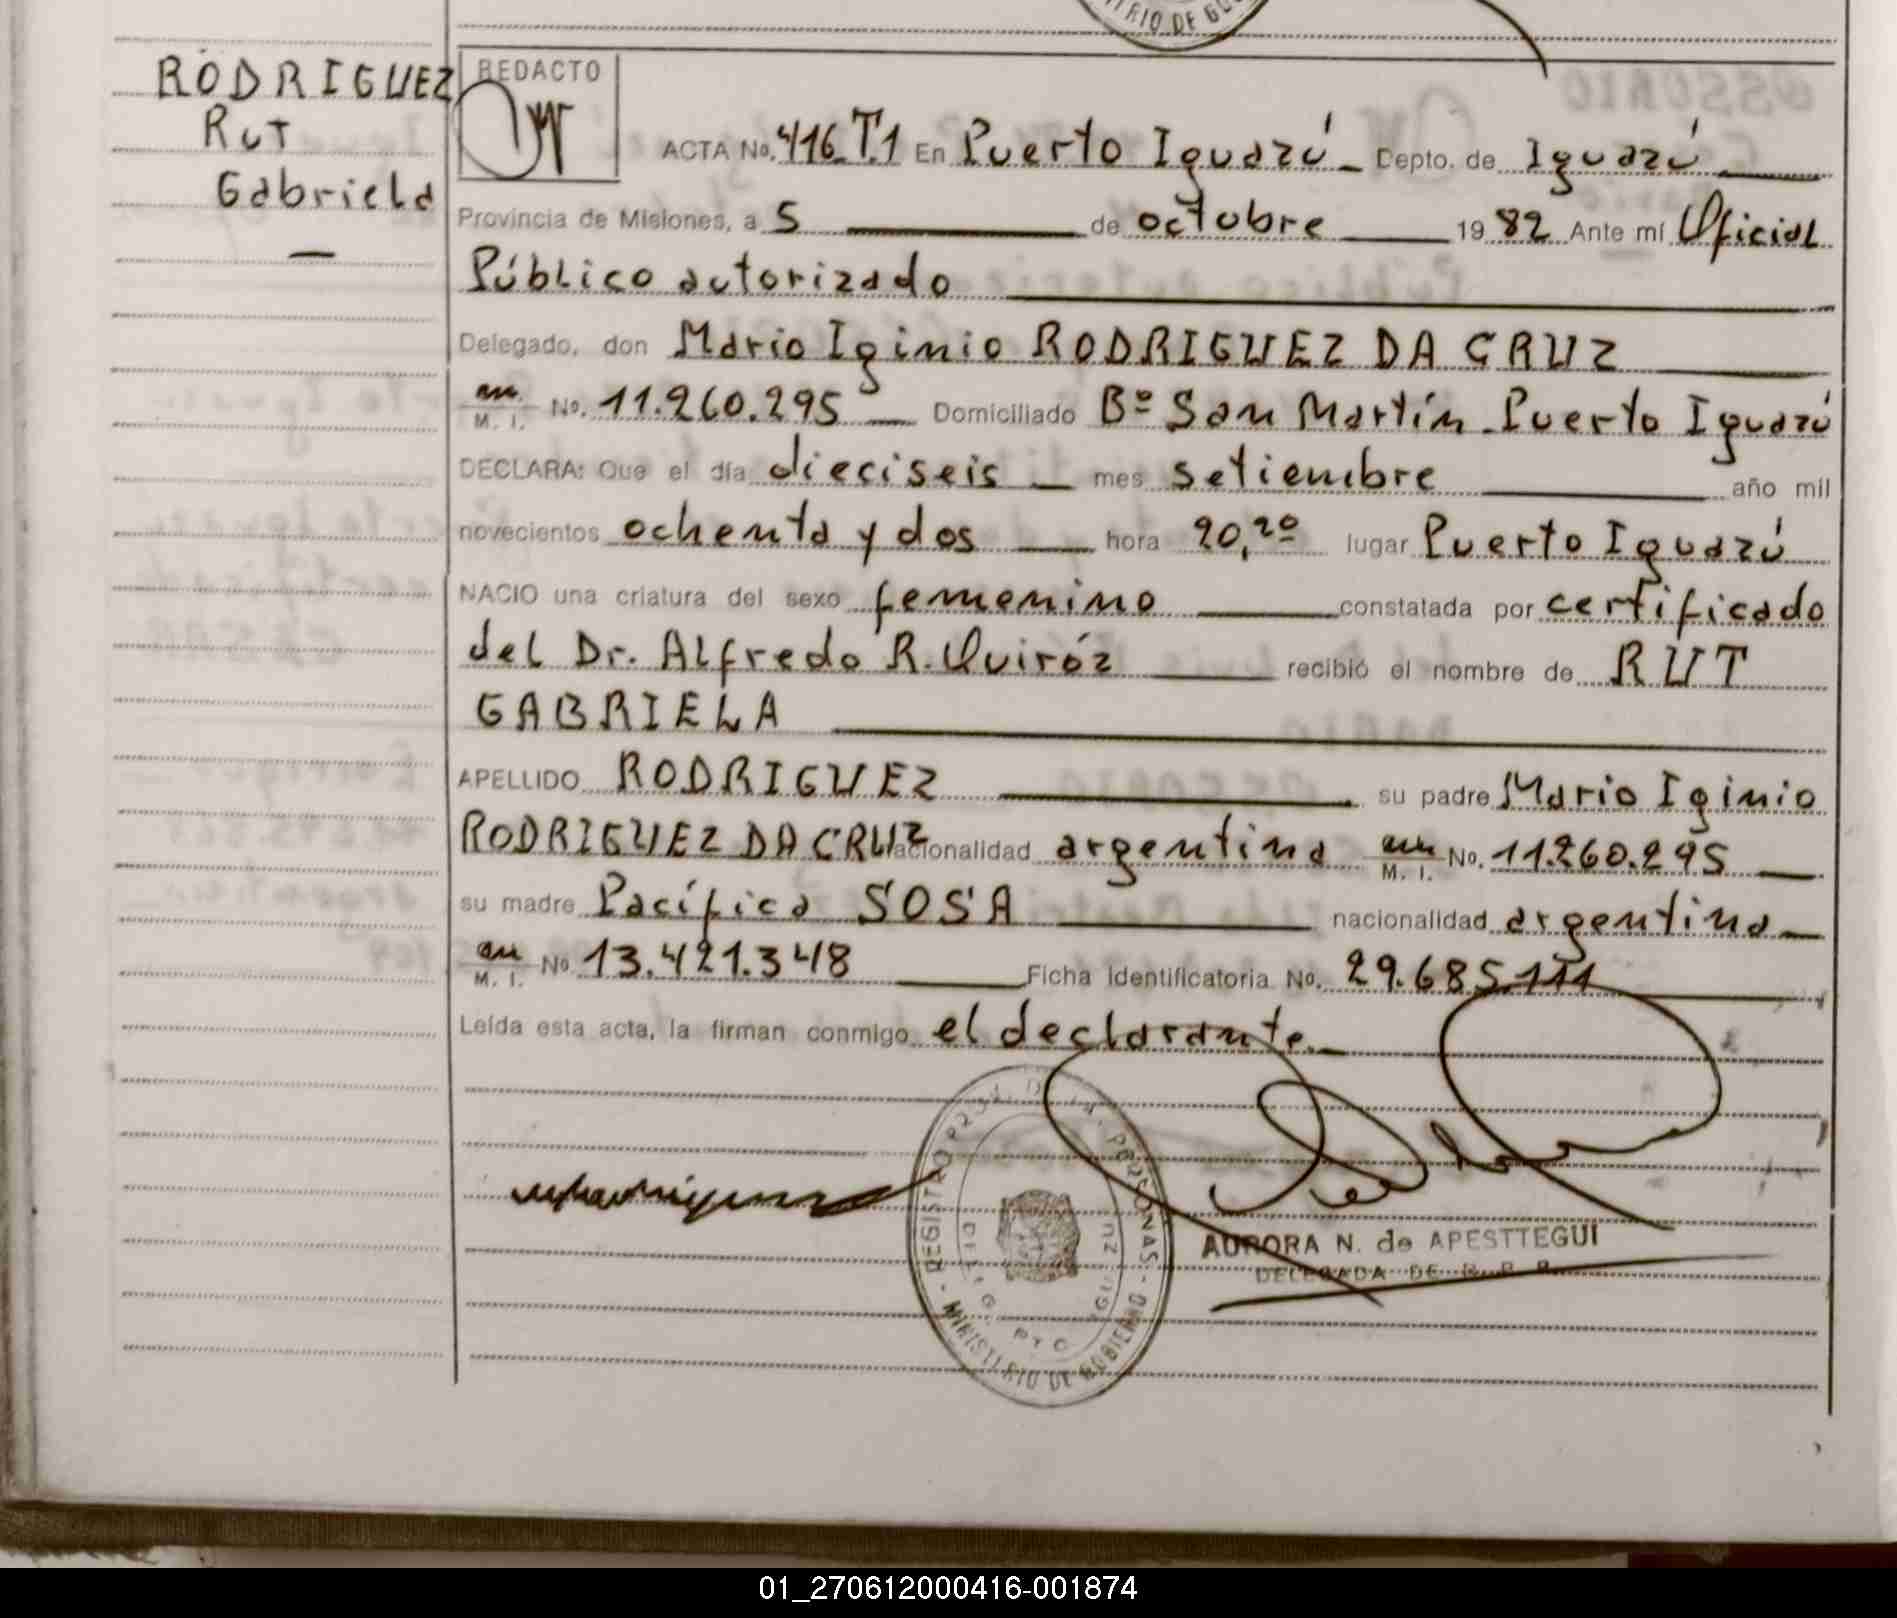 TERIO DE GO
RODRIGUEZ
Rut
Gabriela
REDACTO
ACTA No. 416 T.1 En Puerto Iguazú Depto. de Iguazú
Provincia de Misiones, a 5 de octubre 1982 Ante mí Oficial
Público autorizado
Delegado, don Mario Iginio RODRIGUEZ DA CRUZ
M. I. No. 11.260.295 Domiciliado Bº San Martín Puerto Iguazú
DECLARA: Que el día dieciseis mes setiembre año mil
novecientos ochenta y dos hora 20,20 lugar Puerto Iguazú
NACIO una criatura del sexo femenino constatada por certificado
del Dr. Alfredo R. Quiróz recibió el nombre de RUT
GABRIELA
APELLIDO RODRIGUEZ su padre Mario Iginio
RODRIGUEZ DA CRUZ nacionalidad argentina M. I. No. 11.260.295
su madre Pacífica SOSA nacionalidad argentina
M. I. No 13.421.348 Ficha identificatoria No. 29.685.111
Leída esta acta, la firman conmigo el declarante.
REGISTRO PROV. DE LA PERSONAS - MINISTERIO DE GOBIERNO
AURORA N. de APESTTEGUI
DELEGADA DE R. P. P.
01_270612000416-001874